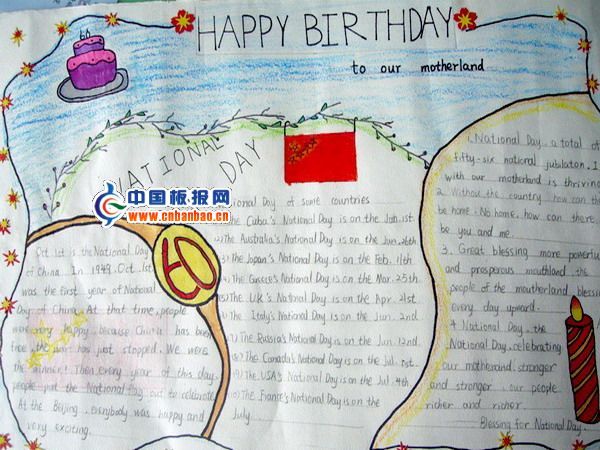 HAPPY BIRTHDAY
60
to our motherland
NATIONAL
DAY
中国板报网
www.cnbanbao.cn
60
Oct 1st is the National Day
of China. In 1949. Oct. 1st
was the first year of National
Day of China. At that time, people
were very happy, because China has been
free, the war has just stopped. We were
the winner! Then every year of this day,
people put the National Day out to celebrate
At the Beijing. Everybody was happy and
very exciting.
National Day of some countries
The Cuba's National Day is on the Jan. 1st
The Australia's National Day is on the Jan. 26th
The Japan's National Day is on the Feb. 11th
The Greece's National Day is on the Mar. 25th
The U.K.'s National Day is on the Apr. 21st
The Italy's National Day is on the Jun. 2nd
The Russia's National Day is on the Jun. 12nd
The Canada's National Day is on the Jul. 1st
The USA's National Day is on the Jul. 4th
The France's National Day is on the
July
1. National Day, a total of
fifty-six national jubilation. I
with our motherland is thriving
2. Without the country, how can the
be home. No home, how can there
be you and me.
3. Great blessing more powerful
and prosperous mouthland. the
people of the moutherland blessing
every day upward.
4. National Day, the
National Day, celebrating
our motherland, stronger
and stronger, our people
richer and richer.
Blessing for National Day